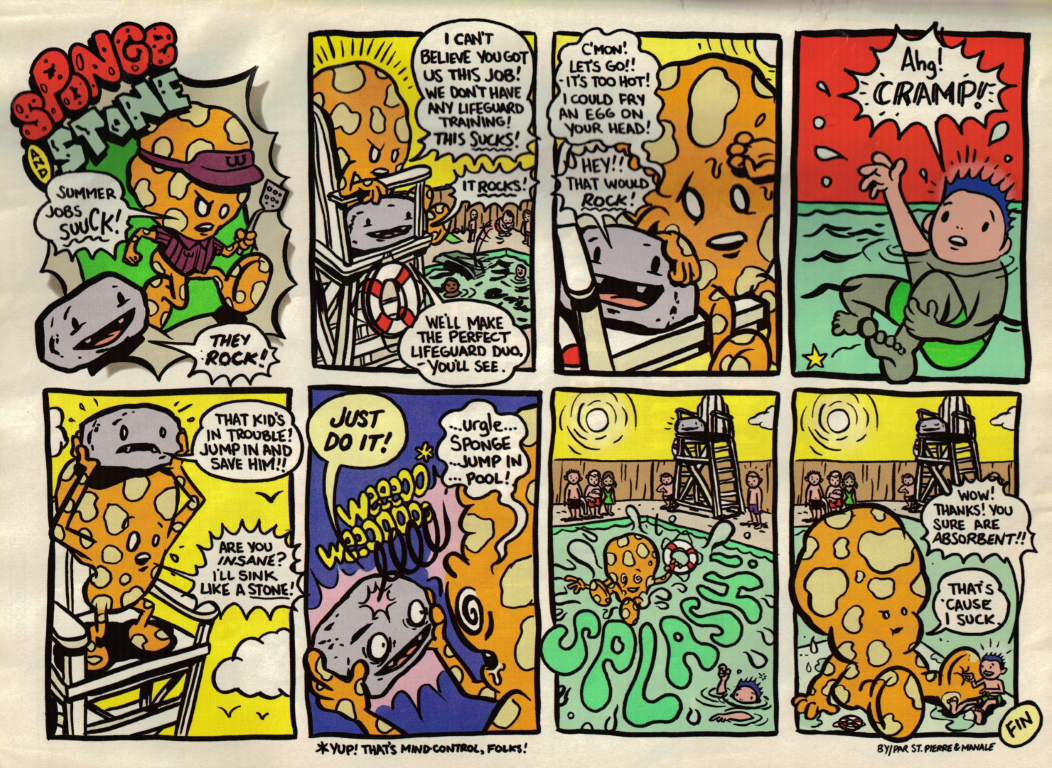 SPONGE
AND
STONE
W
SUMMER
JOBS
SUUCK!
THEY
ROCK!
I CAN'T
BELIEVE YOU GOT
US THIS JOB!
WE DON'T HAVE
ANY LIFEGUARD
TRAINING!
THIS SUCKS!
IT ROCKS!
WE'LL MAKE
THE PERFECT
LIFEGUARD DUO,
-YOU'LL SEE.
C'MON!
LET'S GO!!
-IT'S TOO HOT!
I COULD FRY
AN EGG ON
YOUR HEAD!
HEY!!
THAT WOULD
ROCK!
Ahg!
CRAMP!
THAT KID'S
IN TROUBLE!
JUMP IN AND
SAVE HIM!!
ARE YOU
INSANE?
I'LL SINK
LIKE A STONE!
JUST
DO IT!
*
WEEOOO
WEOOOOOO
...urgle...
SPONGE
...JUMP IN
... POOL!
SPLASH
WOW!
THANKS! YOU
SURE ARE
ABSORBENT!!
THAT'S
'CAUSE
I SUCK.
FIN
*YUP! THAT'S MIND-CONTROL, FOLKS!
BY/PAR ST. PIERRE & MANALE